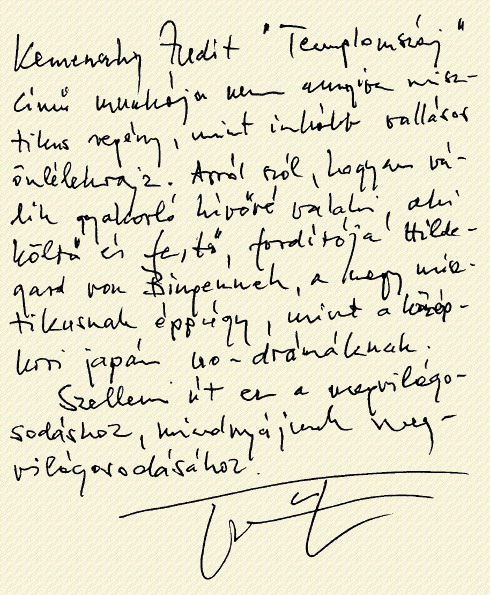 Kemenczky Judit "Templomszáj"
című munkája nem annyira misz-
tikus regény, mint inkább vallásos
önlélekrajz. Arról szól, hogyan vá-
lik gyakorló hívővé valaki, aki
költő és festő, fordítója Hilde-
gard von Bingennek, a nagy misz-
tikusnak éppúgy, mint a közép-
kori japán no-drámáknak.
Szellemi út ez a megvilágo-
sodáshoz, mindnyájunk meg-
világosodásához.